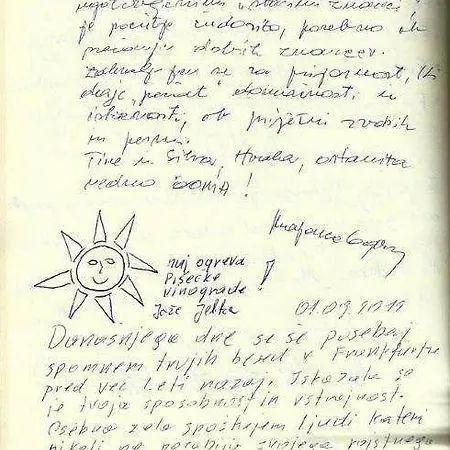 je počutje
dobrih znancev.
Zahvaljujem se za prijaznost, ki
daje "pečat" domačnosti in
iskrenosti, ob prijetni zvokih
in pesmi.
Tine in Silva, Hvala, ostanita
vedno DOMA!
naj ogreva
Pišečke
vinograde!
Jože Jelka
01.09.2011
Današnjega dne se še posebej
spomnem tvojih besed v Frankfurtu
pred več leti nazaj. Izkazala se
je tvoja sposobnost in vztrajnost.
Osebno zelo spoštujem ljudi kateri
nikoli ne pozabijo svojega rojstnega